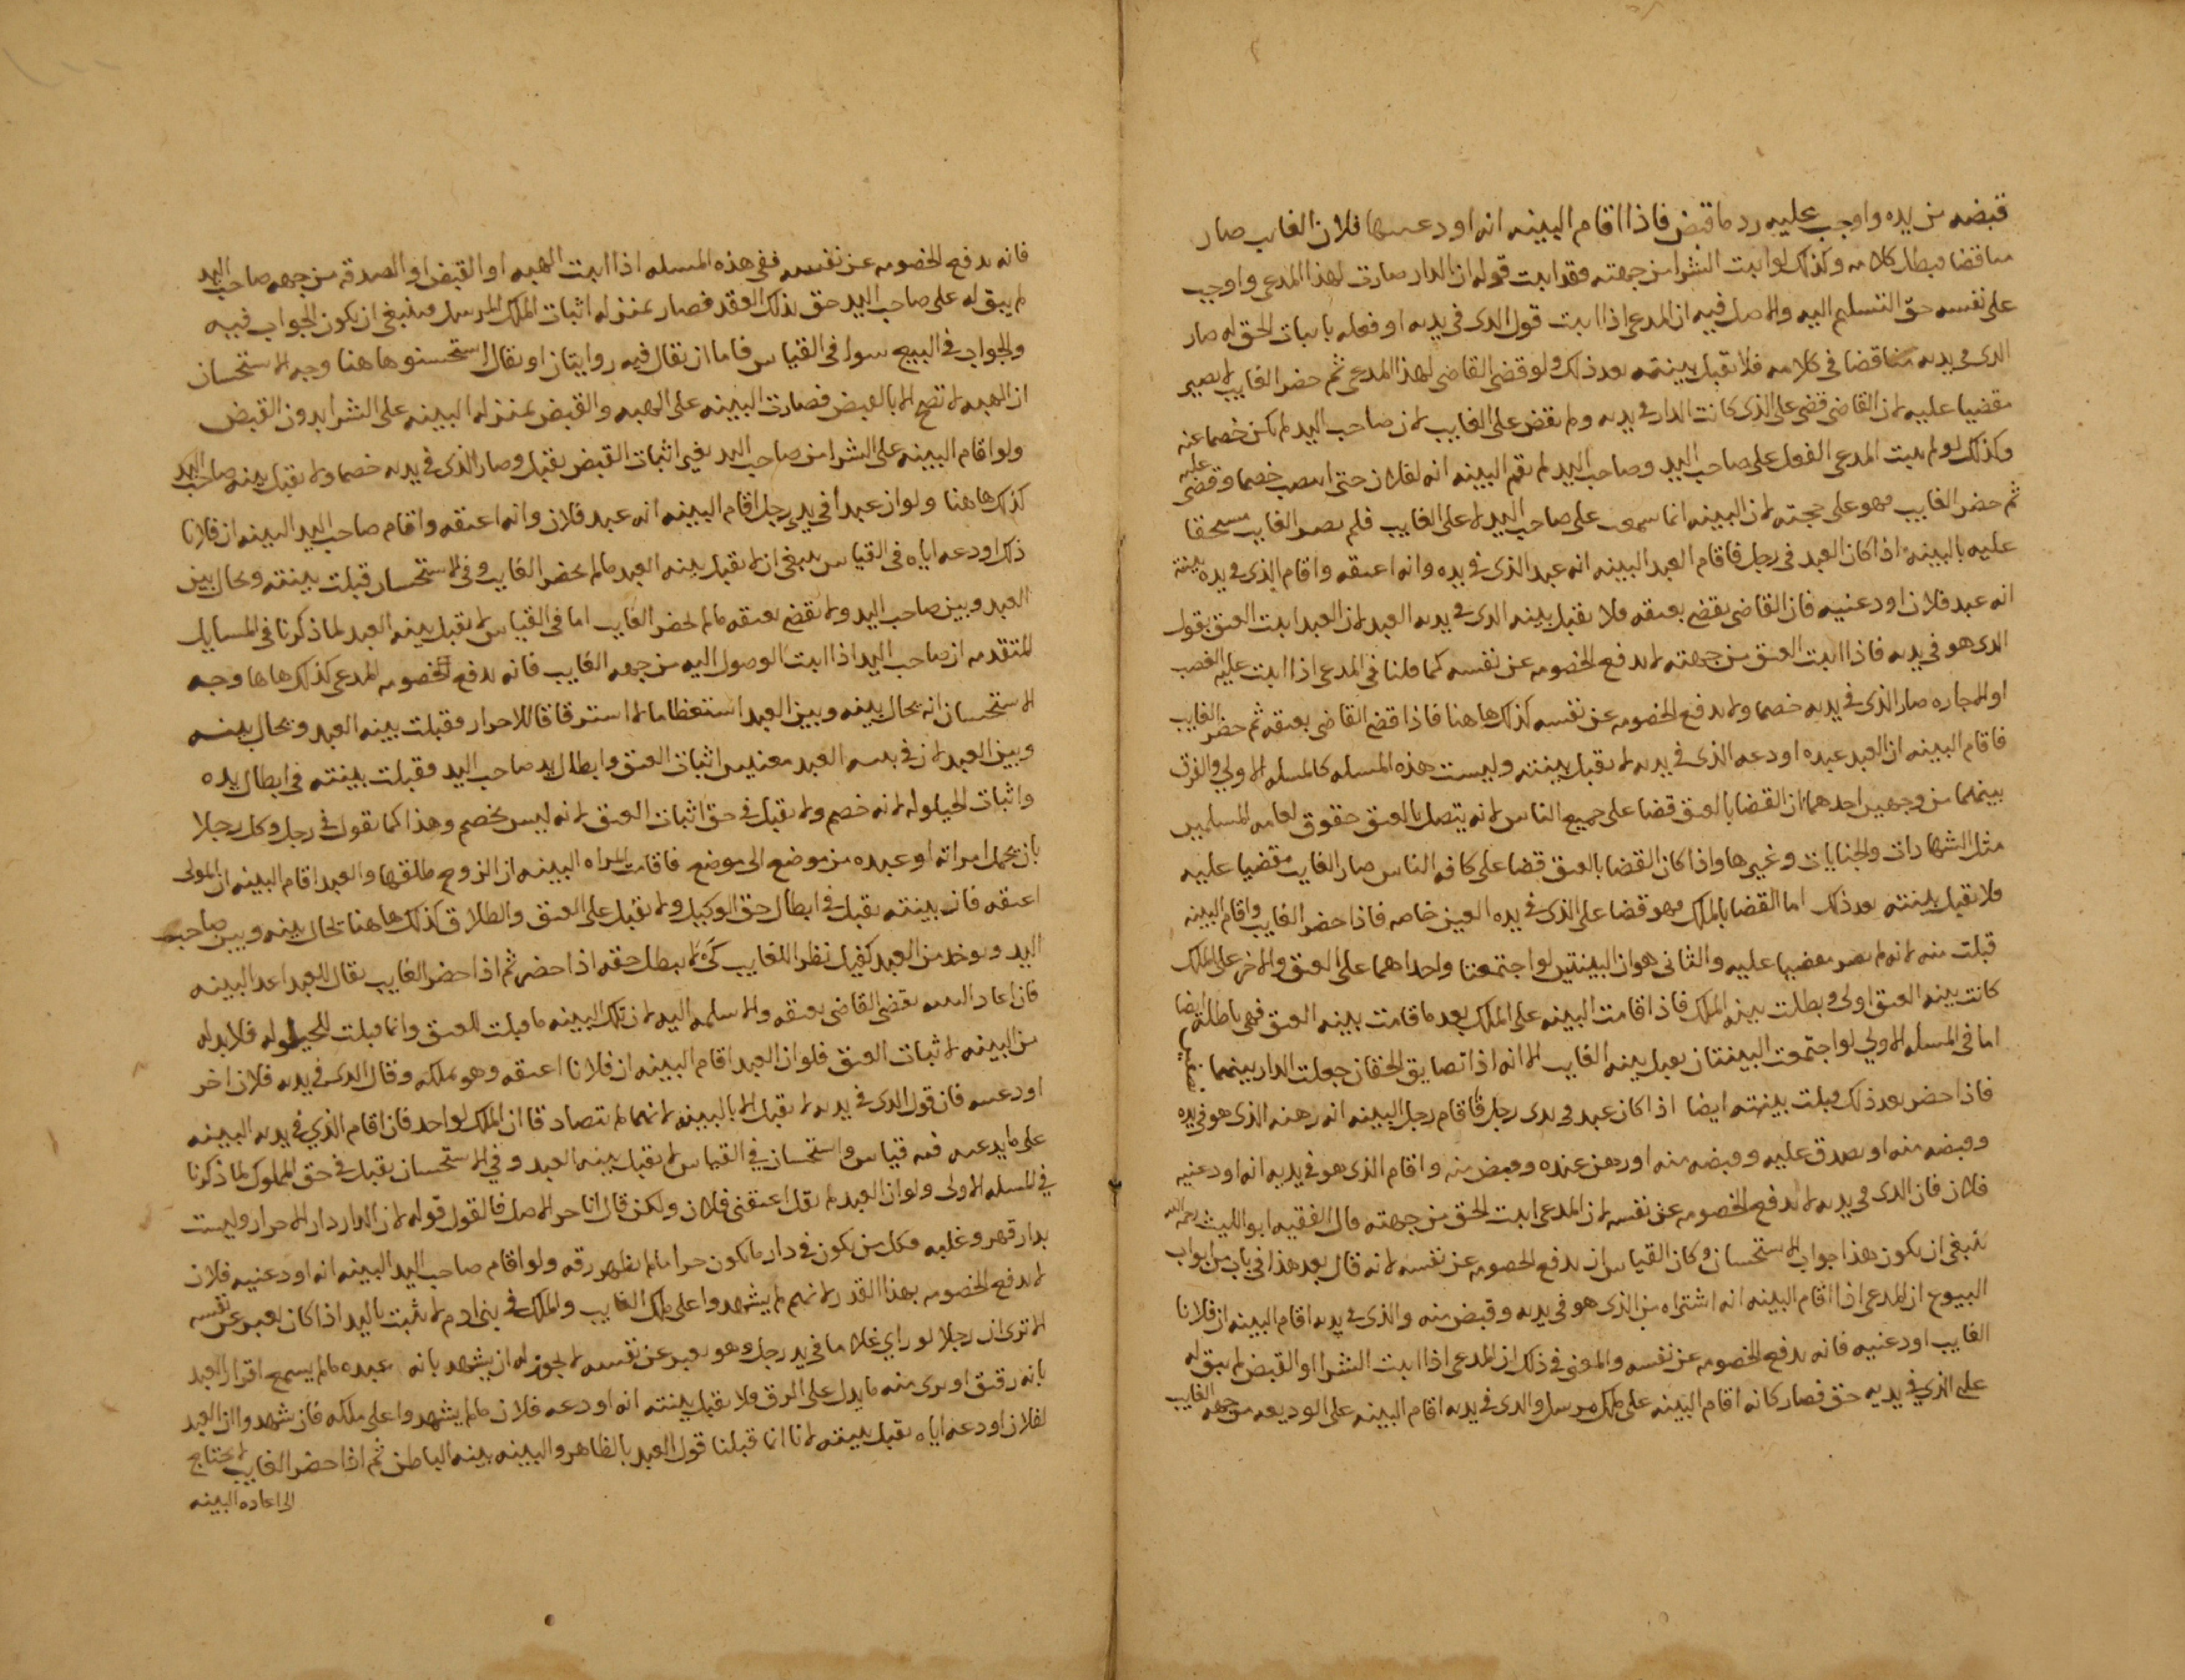 قبضه من يده واوجب عليه رد ما قبض فاذا اقام البينه انه اودعنيها فلان الغايب صار
مناقضا فبطل كلامه وكذلك لو اثبت الشرا من جهته فقد اثبت قوله ان الدار صارت لهذا المدعي واوجب
على نفسه حق التسليم اليه والاصل فيه ان المدعي اذا اثبت قول الذي في يديه او فعله باثبات الحق له صار
الذي في يديه مناقضا في كلامه فلا تقبل بينته بعد ذلك ولو قضى القاضي لهذا المدعي ثم حضر الغايب لا يصير
مقضيا عليه لان القاضي قضى على الذي كانت الدار في يديه ولم يقض على الغايب لان صاحب اليد لم يكن خصما عنه
وكذلك لو لم يثبت المدعي الفعل على صاحب اليد وصاحب اليد لم يقم البينه انه لفلان حتى انتصب خصما وقضى عليه
ثم حضر الغايب فهو على حجته لان البينه انما سمعت على صاحب اليد لا على الغايب فلم يصر الغايب مستحقا
عليه بالبينه اذا كان العبد في رجل فاقام العبد البينه انه عبد الذي في يده وانه اعتقه واقام الذي في يده بينته
انه عبد فلان اودعنيه فان القاضي يقضي بعتقه ولا يقبل بينه الذي في يديه العبد لان العبد اثبت العتق بقول
الذي هو في يديه فاذا اثبت العتق من جهته لا يدفع الخصومه عن نفسه كما قلنا في المدعي اذا اثبت عليه الغصب
او الاجاره صار الذي في يديه خصما ولا يدفع الخصومه عن نفسه كذلك هاهنا فاذا قضى القاضي بعتقه ثم حضر الغايب
فاقام البينه ان العبد عبده اودعه الذي في يديه لا يقبل بينته وليست هذه المسله كالمسله الاولى والفرق
بينهما من وجهين احدهما ان القضا بالعتق قضا على جميع الناس لانه يتصل بالعتق حقوق لعامه المسلمين
مثل الشهادات والجنايات وغيرها واذا كان القضا بالعتق قضا على كافه الناس صار الغايب مقضيا عليه
فلا تقبل بينته بعد ذلك اما القضا بالملك فهو قضا على الذي في يده العين خاصه فاذا حضر الغايب واقام البينه
قبلت منه لانه لم يصر مقضيا عليه والثاني هو ان البينتين لو اجتمعتا واحداهما على العتق والاخرى على الملك
كانت بينه العتق اولى وبطلت بينه الملك فاذا قامت البينه على الملك بعد ما قامت بينه العتق فهي باطله ايضا
اما في المسله الاولى لو اجتمعت البينتان يقبل بينه الغايب الا انه اذا تضايق الحقان جعلت الدار بينهما
فاذا حضر بعد ذلك قبلت بينته ايضا اذا كان عبد في يدي رجل فاقام رجل البينه انه رهنه الذي هو في يده
وقبضه منه او تصدق عليه وقبضه منه او رهن عنده وقبض منه واقام الذي هو في يديه انه اودعنيه
فلان فان الذي في يديه لا يدفع الخصومه عن نفسه لان المدعي اثبت الحق من جهته قال الفقيه ابو الليث رحمه الله
ينبغي ان يكون هذا جواب الاستحسان وكان القياس ان يدفع الخصومه عن نفسه لانه قال بعد هذا في باب من ابواب
البيوع ان المدعي اذا اقام البينه انه اشتراه من الذي هو في يديه وقبض منه والذي في يديه اقام البينه ان فلانا
الغايب اودعنيه فانه يدفع الخصومه عن نفسه والمعنى في ذلك ان المدعي اذا اثبت الشرا والقبض لم يبق له
على الذي في يديه حق فصار كانه اقام البينه على ملك مرسل والذي في يديه اقام البينه على الوديعه من جهه الغايب
فانه يدفع الخصومه عن نفسه ففي هذه المسله اذا اثبت الهبه او القبض او الصدقه من جهه صاحب اليد
لم يبق له على صاحب اليد حق بذلك العقد فصار بمنزله اثبات الملك المرسل فينبغي ان يكون الجواب فيه
والجواب في البيع سواء في القياس فاما ان يقال فيه روايتان او يقال استحسنوا هاهنا وجه الاستحسان
ان الهبه لا تصح الا بالقبض فصارت البينه على الهبه والقبض بمنزله البينه على الشرا بدون القبض
ولو اقام البينه على الشرا من صاحب اليد بغير اثبات القبض يقبل وصار الذي في يديه خصما ولا يقبل بينه صاحب اليد
كذلك هاهنا ولو ان عبدا في يدي رجل اقام البينه انه عبد فلان وانه اعتقه واقام صاحب اليد البينه ان فلانا
ذلك اودعه اياه في القياس ينبغي ان لا يقبل بينه العبد ما لم يحضر الغايب وفي الاستحسان قبلت بينته ويحال بين
العبد وبين صاحب اليد ولا يقضى بعتقه ما لم يحضر الغايب اما في القياس لا يقبل بينه العبد لما ذكرنا في المسايل
المتقدمه ان صاحب اليد اذا اثبت الوصول اليه من جهه الغايب فانه يدفع الخصومه المدعي كذلك هاهنا وجه
الاستحسان انه يحال بينه وبين العبد استعظاما لا استرقاقا للاحرار فقبلت بينه العبد ويحال بينه
وبين العبد لان في بينه العبد معنيين اثبات العتق وابطال يد صاحب اليد فقبلت بينته في ابطال يده
واثبات الحيلوله لانه خصم ولا يقبل في حق اثبات العتق لانه ليس بخصم وهذا كما نقول في رجل وكل رجلا
بان يحمل امراته او عبده من موضع الى موضع فاقامت المراه البينه ان الزوج طلقها والعبد اقام البينه ان المولى
اعتقه فان بينته يقبل في ابطال حق الوكيل ولا يقبل على العتق والطلاق كذلك هاهنا يحال بينه وبين صاحب
اليد ويوخذ من العبد كفيل نظرا للغايب كي لا يبطل حقه اذا حضر ثم اذا حضر الغايب يقال للعبد اعد البينه
فان اعاد البينه يقضي القاضي بعتقه والا سلمه اليه لان تلك البينه ما قبلت للعتق وانما قبلت للحيلوله فلا بد له
من البينه لاثبات العتق فلو ان العبد اقام البينه ان فلانا اعتقه وهو يملكه وقال الذي في يديه فلان اخر
اودعنيه فان قول الذي في يديه لا يقبل الا بالبينه لانهما لم يتصادقا ان الملك لواحد فان اقام الذي في يديه البينه
على ما يدعيه ففيه قياس واستحسان في القياس لا يقبل بينه العبد وفي الاستحسان يقبل في حق المملوك لما ذكرنا
في المسله الاولى ولو ان العبد لم يقل اعتقني فلان ولكن قال انا حر الاصل فالقول قوله لان الدار دار الاحرار وليست
بدار قهر وغلبه فكل من يكون في دارنا يكون حرا ما لم يظهر رقه ولو اقام صاحب اليد البينه انه اودعنيه فلان
لا يدفع الخصومه بهذا القدر لانهم لم يشهدوا على ملك الغايب والملك في بني ادم لا يثبت باليد اذا كان يعبر عن نفسه
الا ترى ان رجلا لو راى غلاما في يد رجل وهو يعبر عن نفسه لا يجوز له ان يشهد بانه عبده ما لم يسمع اقرار العبد
بانه رقيق او يرى منه ما يدل على الرق فلا يقبل بينته انه اودعه فلان ما لم يشهدوا على ملكه فان شهدوا ان العبد
لفلان اودعه اياه يقبل بينته لانا انما قبلنا قول العبد بالظاهر والبينه بينه الباطن ثم اذا حضر الغايب لا يحتاج
الى اعاده البينه